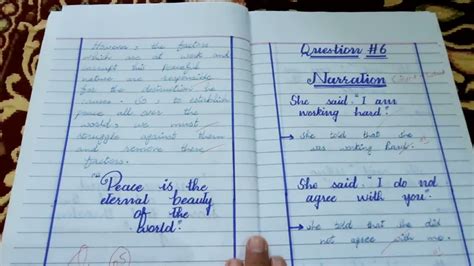 However, the factors
which are at work and
corrupt his peaceful
nature are responsible
for the destruction he
causes. So, to establish
peace all over the
world, we must
struggle against them
and remove these
factors.
"Peace is the
eternal beauty
of the
world."
Question #6
Narration
She said, "I am
working hard."
→ She told that she
was working hard.
She said, "I do not
agree with you."
→ She told that she did
not agree with me.